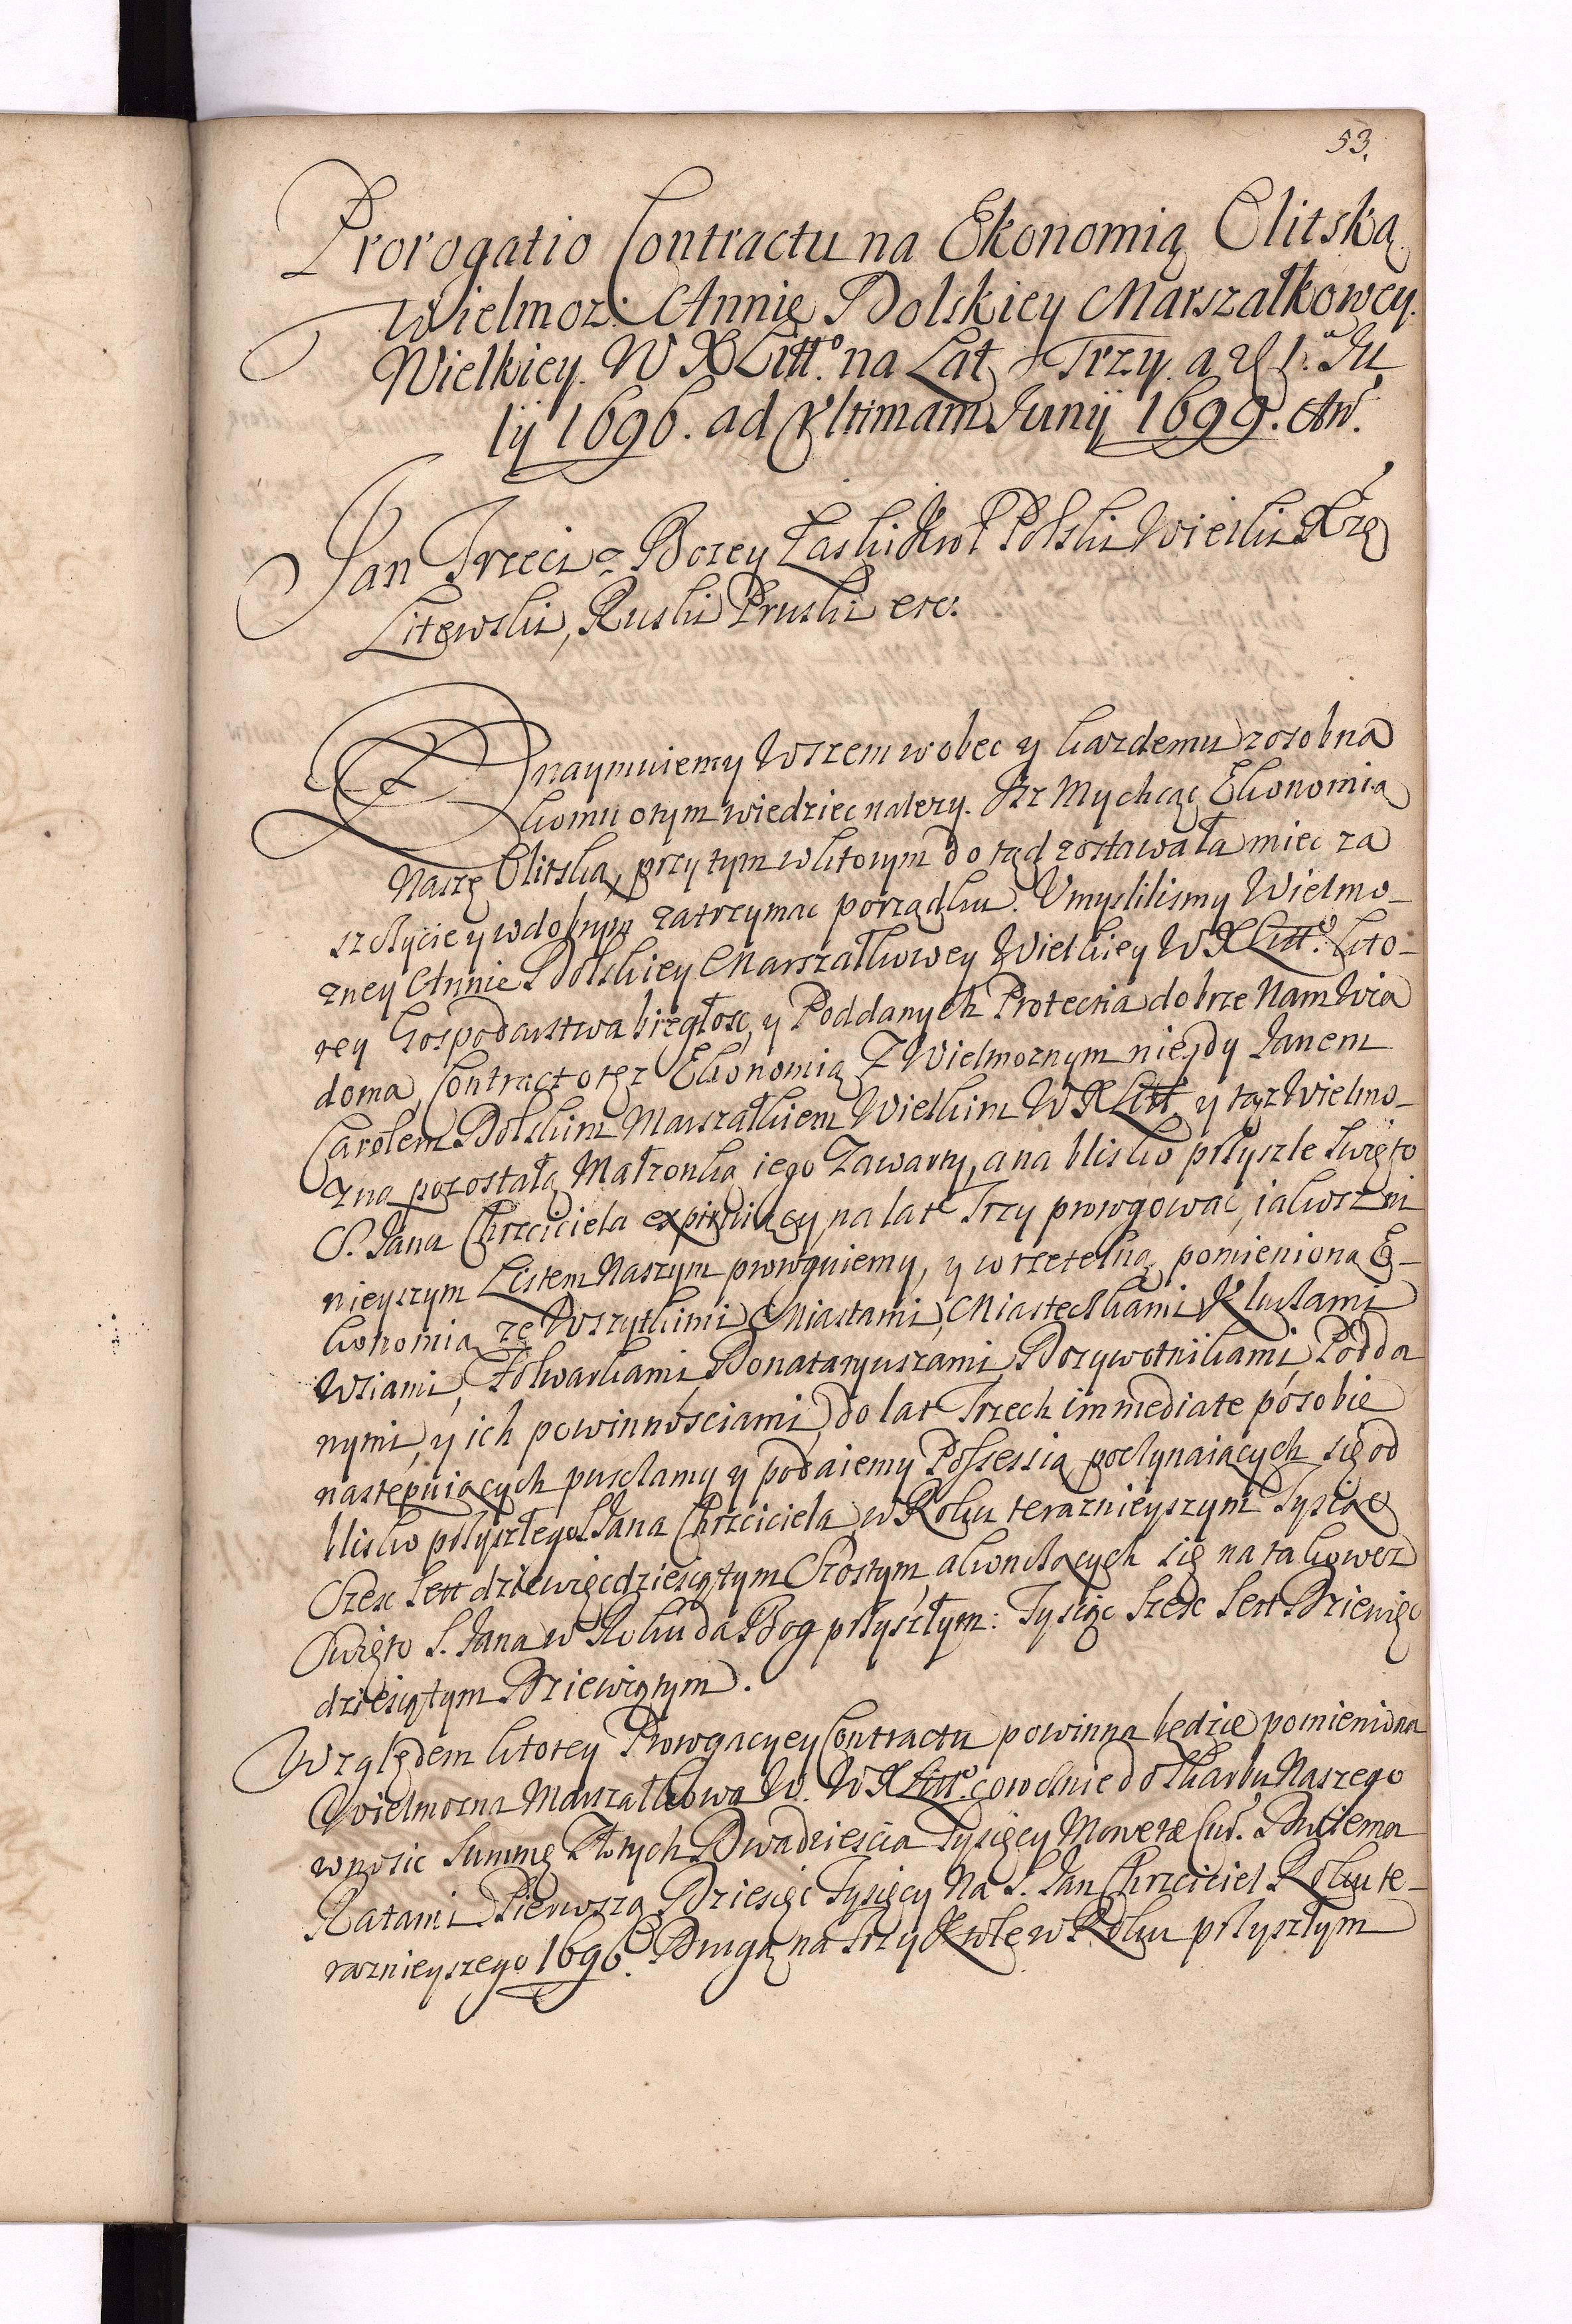 53.
Prorogatio Contractu na Ekonomią Olitską
Wielmoz: Annie Dolskiey Marszałkowey
Wielkiey W X Litt.º na Lat Trzy a d 1.ª Ju
lij 1696. ad Vltimam Junij 1699. An.
Jan Trzeci z Bozey Łaski Krol Polski Wielki Xżę
Litewski, Ruski Pruski etc.
Znaymuiemy Wszem wobec y kazdemu zosobna
komu otym wiedziec nalezy. Isz My chcąc Ekonomią
Naszę Olitską, przy tym wktorym do tąd zostawała miec za
szczycie y wdobrym zatrzymac porządku. Vmyslilismy Wielmo-
zney Annie Dolskiey Marszałkowey Wielkiey W X Litt.º kto-
rey Gospodarstwa biegłosc, y Poddanych Protectia dobrze Nam Wia
doma, Contract otęz Ekonomią Z Wielmoznym niegdy Janem
Carolem Dolskim Marszałkiem Wielkim W X Litt. y tąz Wielmo-
zną pozostałą Małzonką iego Zawarty, a na blisko przyszłe Swięto
S. Jana Chrzciciela expiruiący, na lat Trzy prorogowac, iakosz ni
nieyszym Listem Naszym prorguiemy, y w rzetelną pomienioną E-
konomią ze Wszytkimi Miastami, Miasteczkami Kluczami
Wsiami, Folwarkami, Donataryuszami, Dozywotnikami, Podda
nymi, y ich powinnosciami, do lat Trzech immediate posobie
nastepuiących pusczamy y podaiemy Possessią poczynaiących się od
blisko przyszłego S Jana Chrzciciela, w Roku terazniejszym Tysiąc
Szesc Sett dziewięcdziesiątym Szostym, a konczących się na takowez
Swięto S. Jana w Roku da Bog przyszłym: Tysiąc Szesc Set Dziewięc
dziesiątym Dziewiątym.
Względem ktorey Prorogacyey Contractu powinna będzie pomieniona
Wielmozna Marszałkowa W. W X Litt.º corocznie do Skarbu Naszego
wnosic Summę Złotych Dwadziescia Tysięcy Monetæ Cur. Dwiema
Ratami Pierwszą Dziesięc Tysięcy Na S. Jan Chrzciciel Roku te-
raznieyszego 1696. Drugą na Trzy Krole w Roku przyszłym